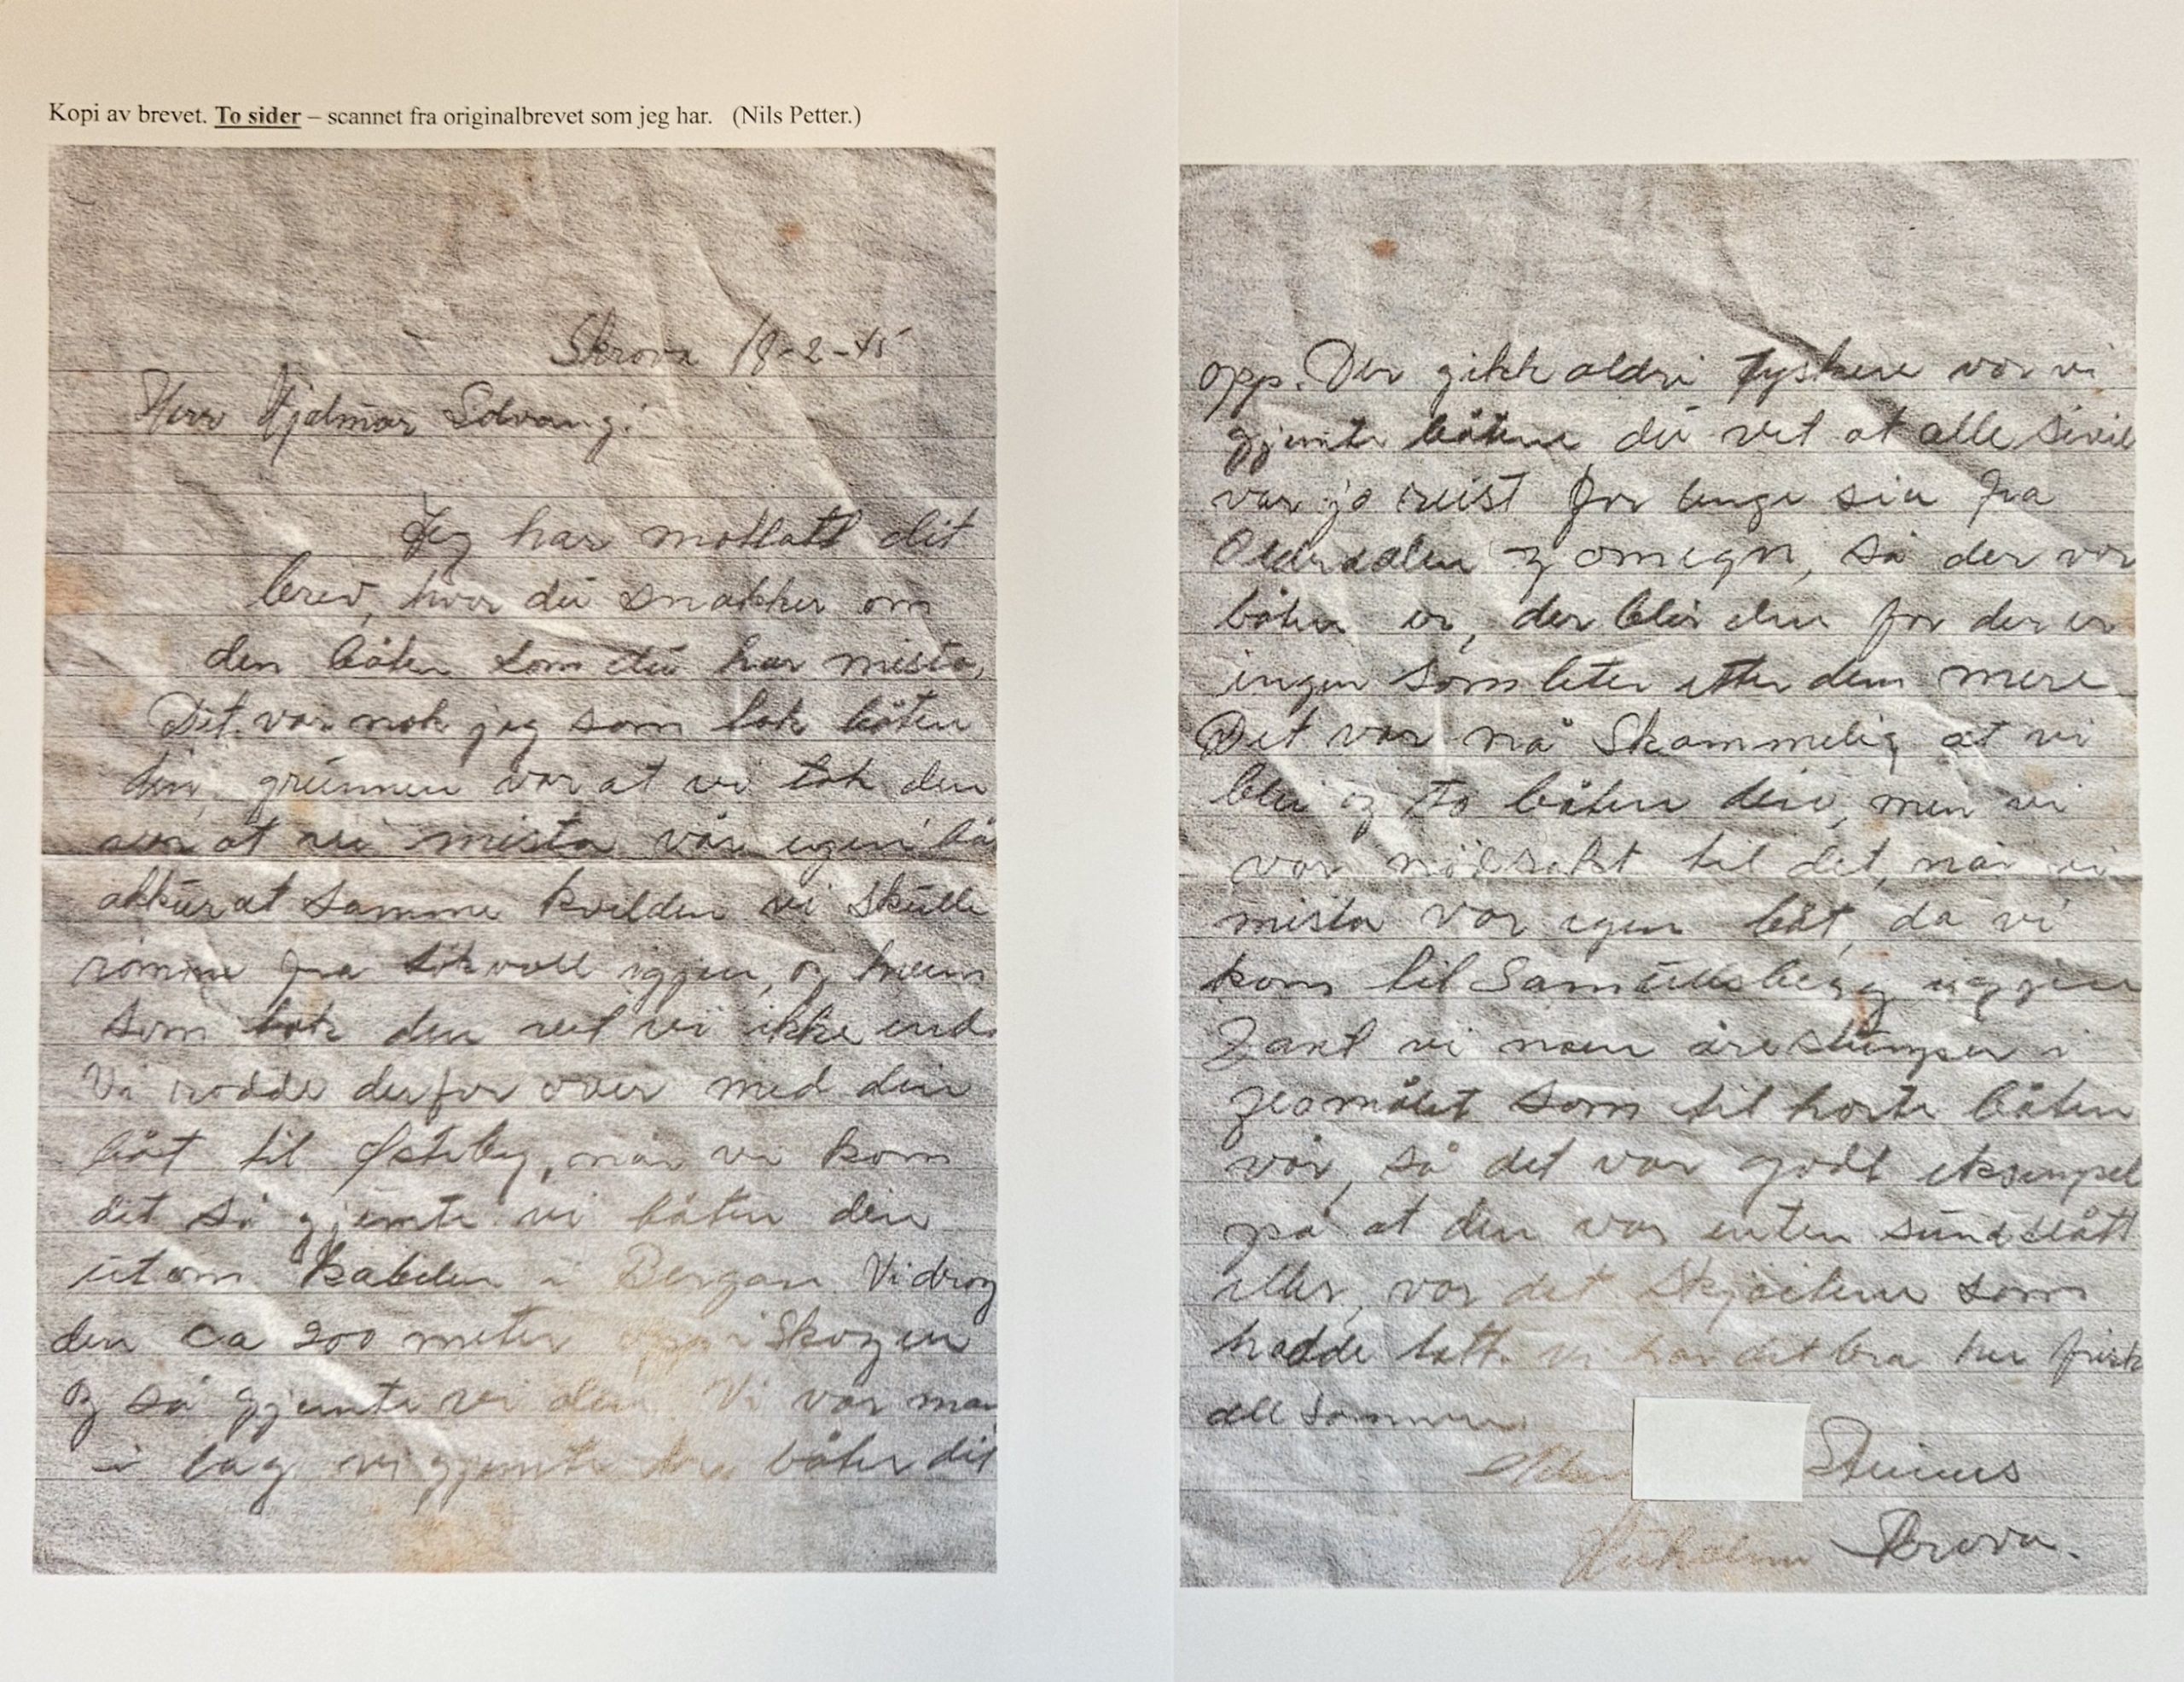 Kopi av brevet. To sider – scannet fra originalbrevet som jeg har. (Nils Petter.)
Skrova 18-2-45
Herr Hjalmar Solvang!
Jeg har mottatt dit
brev, hvor du snakker om
den båten som du har mista,
Det var nok jeg som tok båten
din, grunnen var at vi tok den
at vi mista vår egen bå
akkurat samme kvelden vi skulle
rømme fra igjen, og hvem
som tok den vet vi ikke end
Vi rodde derfor over med din
båt til Østeby, når vi kom
dit så gjemte vi båten din
utom kabelen i Bergan Vi drog
den ca 200 meter opp i Skogen
og så gjemte vi den. Vi var man
i lag vi gjemte båter dit
opp. Der gikk aldri tyskere vor vi
gjemte båtene du vet at alle sivil
var jo reist for lenge sia fra
Olderdalen og omegn, så der vor
båten er, der blir den for der er
ingen som leter etter dem mere
Det var nå Skammelig at vi
blei og ta båten din, men vi
var nødsakt til det, når vi
mista vor egen båt, da vi
kom til Samuelsberg igjen
Fant vi noen årestumper i
som til hørte båten
vår, så det var godt eksempel
på at den var enten sundslått
eller, var det som
hadde tatt. Vi har det bra her frisk
all sammen.
Steinnes
Skrova.